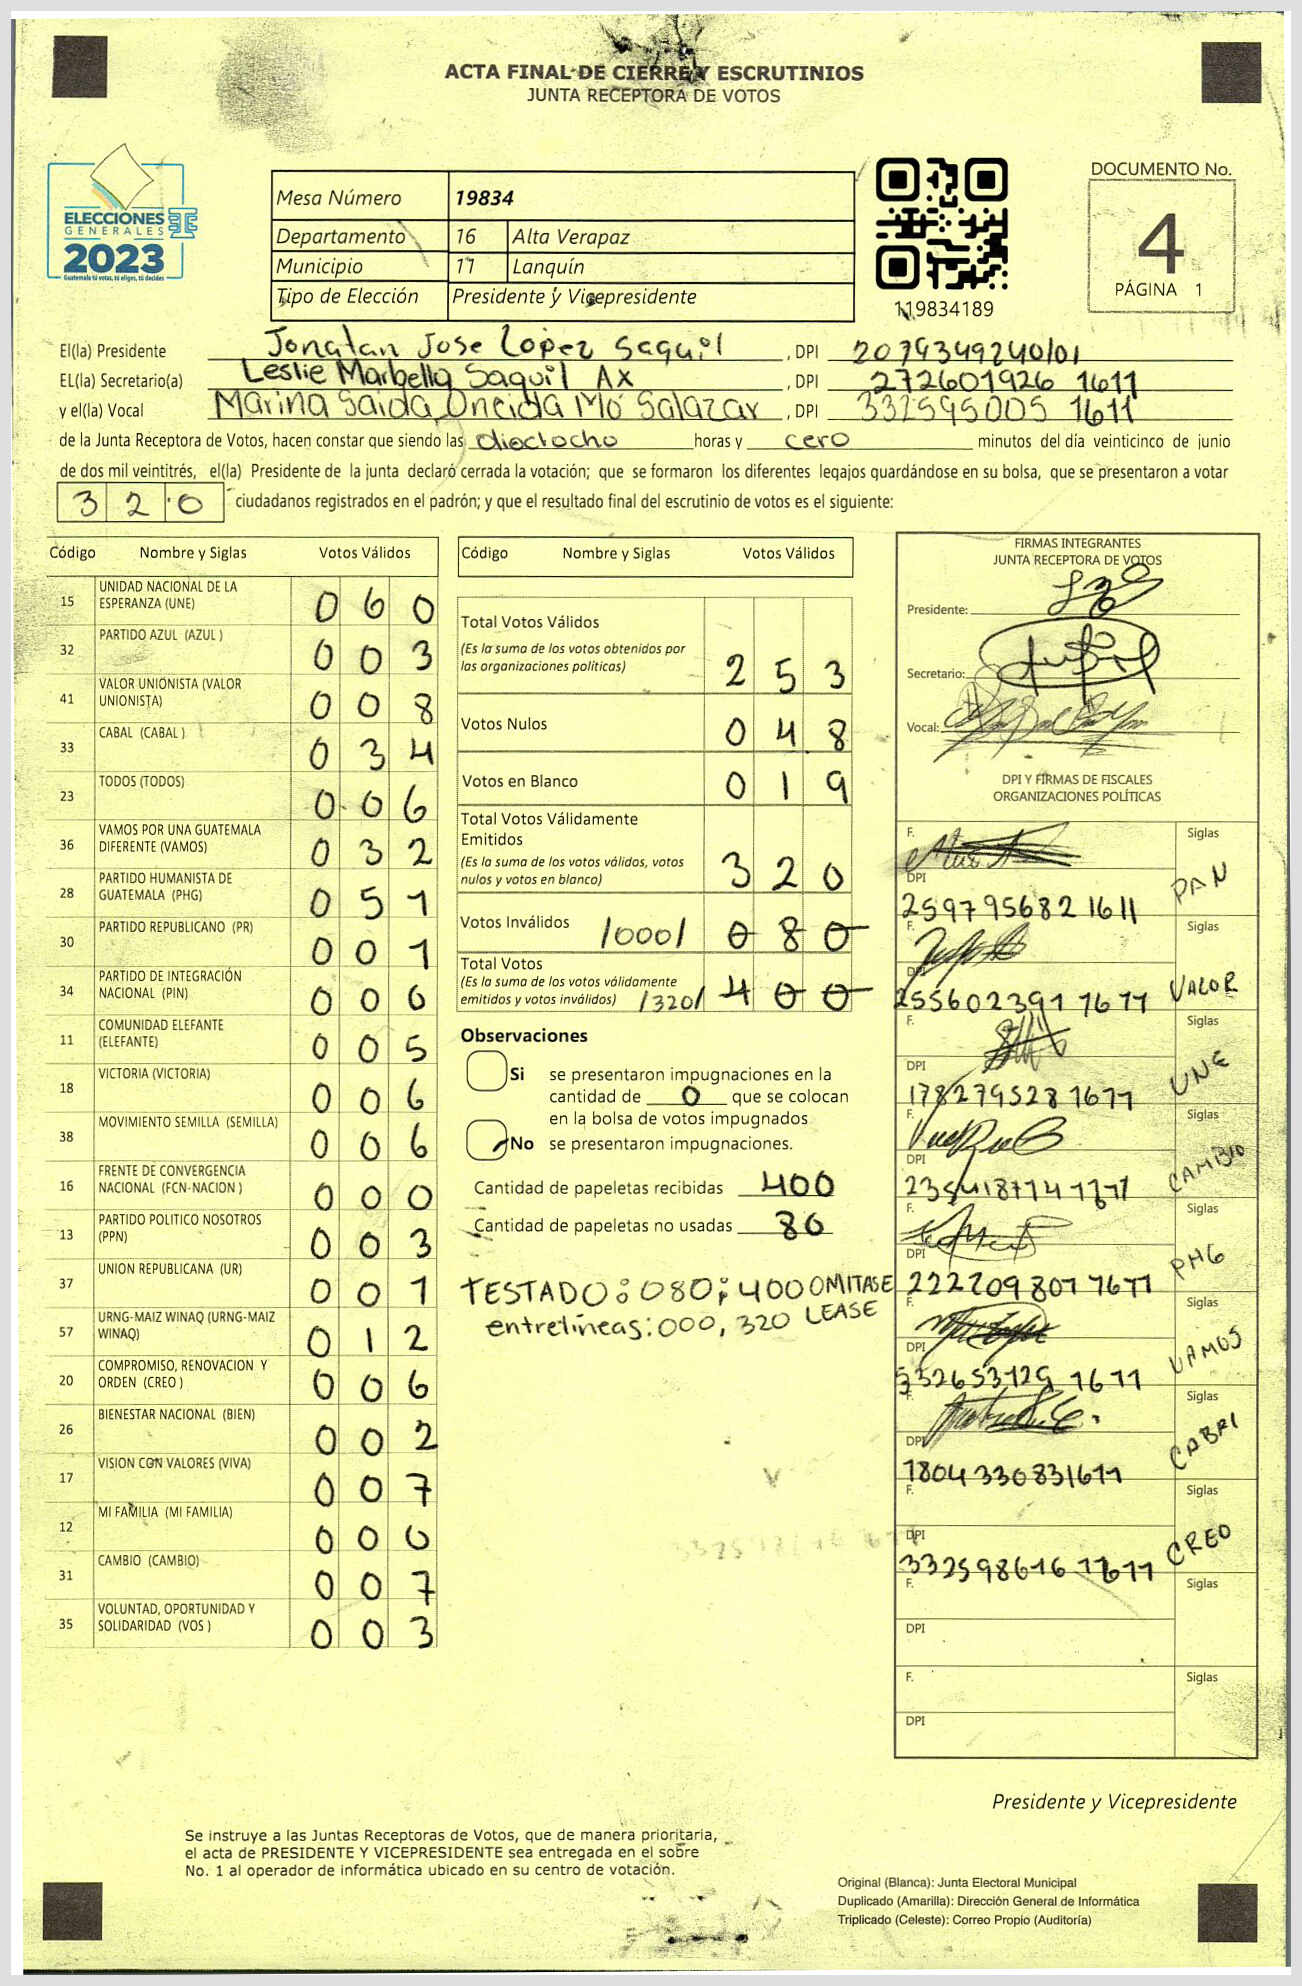 ACTA FINAL DE CIERRE Y ESCRUTINIOS
JUNTA RECEPTORA DE VOTOS
ELECCIONES
GENERALES
2023
Guatemala tú votas, tú eliges, tú decides
Mesa Número 19834
Departamento 16 Alta Verapaz
Municipio 11 Lanquín
Tipo de Elección Presidente y Vicepresidente
119834189
DOCUMENTO No.
4
PÁGINA 1
El(la) Presidente Jonatan Jose Lopez Saquil , DPI 2079349240101
EL(la) Secretario(a) Leslie Marbella Saquil Ax , DPI 272601926 1611
y el(la) Vocal Marina Saida Oneida Mó Salazar , DPI 332595005 1611
de la Junta Receptora de Votos, hacen constar que siendo las dieciocho horas y cero minutos del día veinticinco de junio
de dos mil veintitrés, el(la) Presidente de la junta declaró cerrada la votación; que se formaron los diferentes legajos guardándose en su bolsa, que se presentaron a votar
320 ciudadanos registrados en el padrón; y que el resultado final del escrutinio de votos es el siguiente:
Código Nombre y Siglas Votos Válidos
15 UNIDAD NACIONAL DE LA ESPERANZA (UNE) 060
32 PARTIDO AZUL (AZUL ) 003
41 VALOR UNIONISTA (VALOR UNIONISTA) 008
33 CABAL (CABAL ) 034
23 TODOS (TODOS) 006
36 VAMOS POR UNA GUATEMALA DIFERENTE (VAMOS) 032
28 PARTIDO HUMANISTA DE GUATEMALA (PHG) 051
30 PARTIDO REPUBLICANO (PR) 001
34 PARTIDO DE INTEGRACIÓN NACIONAL (PIN) 000
11 COMUNIDAD ELEFANTE (ELEFANTE) 005
18 VICTORIA (VICTORIA) 006
38 MOVIMIENTO SEMILLA (SEMILLA) 006
16 FRENTE DE CONVERGENCIA NACIONAL (FCN-NACION ) 000
13 PARTIDO POLITICO NOSOTROS (PPN) 003
37 UNION REPUBLICANA (UR) 001
57 URNG-MAIZ WINAQ (URNG-MAIZ WINAQ) 012
20 COMPROMISO, RENOVACION Y ORDEN (CREO ) 006
26 BIENESTAR NACIONAL (BIEN) 002
17 VISION CON VALORES (VIVA) 007
12 MI FAMILIA (MI FAMILIA) 000
31 CAMBIO (CAMBIO) 007
35 VOLUNTAD, OPORTUNIDAD Y SOLIDARIDAD (VOS ) 003
Código Nombre y Siglas Votos Válidos
Total Votos Válidos
(Es la suma de los votos obtenidos por
las organizaciones políticas) 253
Votos Nulos 048
Votos en Blanco 019
Total Votos Válidamente
Emitidos
(Es la suma de los votos válidos, votos
nulos y votos en blanco) 320
Votos Inválidos /000/ 080
Total Votos
(Es la suma de los votos válidamente
emitidos y votos inválidos) /320/ 400
Observaciones
Si se presentaron impugnaciones en la
cantidad de 0 que se colocan
en la bolsa de votos impugnados
No se presentaron impugnaciones.
Cantidad de papeletas recibidas 400
Cantidad de papeletas no usadas 80
TESTADO: 080; 400 OMITASE
entrelíneas: 000, 320 LEASE
FIRMAS INTEGRANTES
JUNTA RECEPTORA DE VOTOS
Presidente:
Secretario:
Vocal:
DPI Y FIRMAS DE FISCALES
ORGANIZACIONES POLÍTICAS
F. Siglas
DPI PAN
259795682 1611
F. Siglas
DPI VALOR
255602391 1611
F. Siglas
DPI UNE
178279528 1611
F. Siglas
DPI CAMBIO
F. Siglas
DPI PHG
222209801 1611
F. Siglas
DPI VAMOS
F. Siglas
DPI CABAL
1804330831611
F. Siglas
DPI CREO
332598616 1611
F. Siglas
DPI
F. Siglas
DPI
Presidente y Vicepresidente
Se instruye a las Juntas Receptoras de Votos, que de manera prioritaria,
el acta de PRESIDENTE Y VICEPRESIDENTE sea entregada en el sobre
No. 1 al operador de informática ubicado en su centro de votación.
Original (Blanca): Junta Electoral Municipal
Duplicado (Amarilla): Dirección General de Informática
Triplicado (Celeste): Correo Propio (Auditoría)